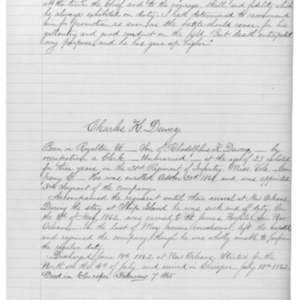 all the time the brief and to the vigorous skill and fidelity which
he always exhibited on duty. I had determined to recommend
him for promotion as soon as the battle should cease for his
gallantry and good conduct on the field. But death anticipated
my purpose and he has gone up higher."
Charles K. Dewey
Born in Royalton Vt. Son of Rhodolphus K. Dewey by
occupation a Clerk. Unmarried at the age of 23 enlisted
for three years in the 31st Regiment of Infantry Mass Vols
Company He was October 1861 and was appointed
Sergeant of the company.
Accompanied the regiment until their arrival at New Orleans
During the stay at Ship Island he was and off duty. On
the of May 1862, was sent to St James Hospital New
Orleans. In the last of May left the hospital
and rejoined the company, though he was wholly unable to perform
the regular duty.
Discharged June 1862 at New Orleans. Started for the
North on the of July and arrived in Chicopee July 1862
Died in Chicopee February 7 1865